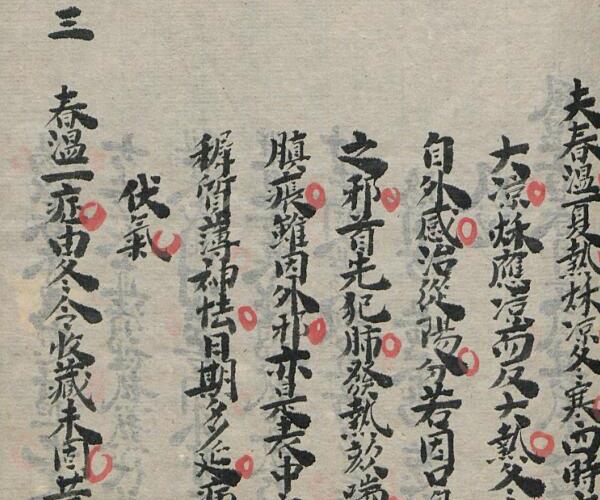 夫春溫夏熱秌凉冬寒四時
大凉秌應凉而反大熱冬
自外感治從陽分若因口
之邪首先犯肺發熱欬喘
䐜痕雖因外邪亦是表中
稺質薄神怯日期多延病
伏氣
三 春溫一症由冬令收藏未固